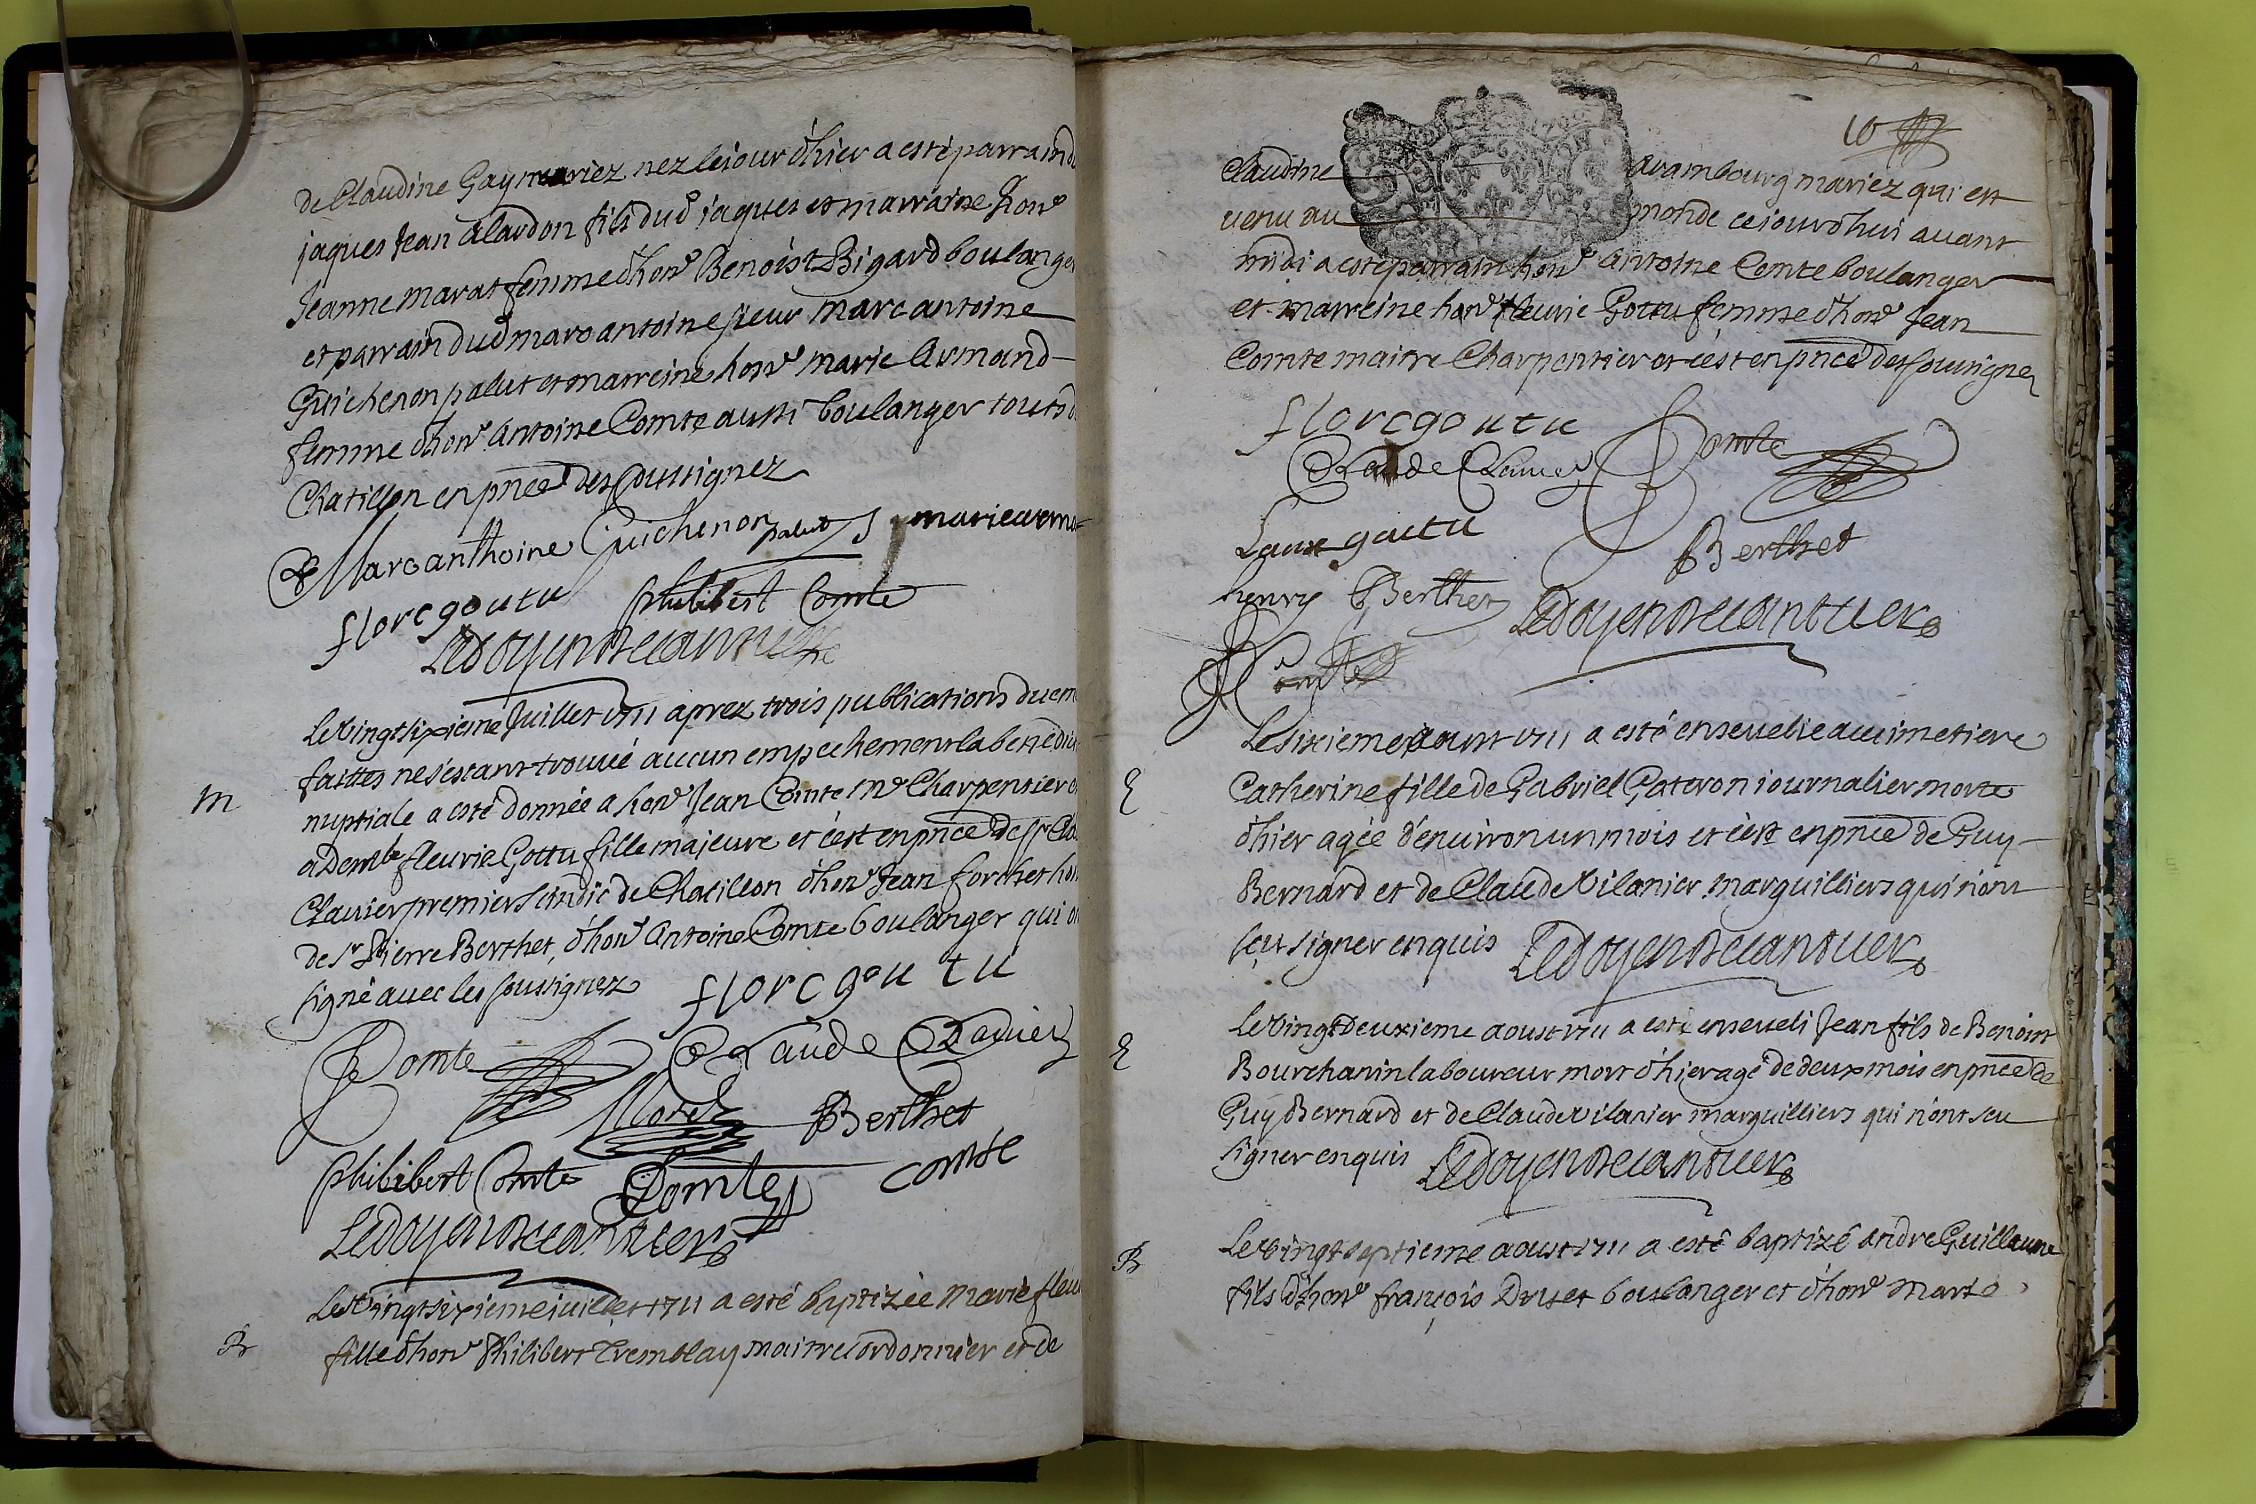 de Claudine Gay mariez nez le jour d'hier a esté parrain d
jaques Jean Alardon fils dud jaques et marraine hon.e
Jeanne marat femme d'hon.e Benoist Bigard boulanger
et parrain dud marc antoine sieur Marc antoine
Guichenon palut et marreine hon.e marie Armand
femme d'hon.e Antoine Comte aussi boulanger touts d
Chatillon en pnce des soussignez
Marc anthoine Guichenon palut marie arma
flore goutu philibert Comte
Ledoyen
Le vingt sixieme Juillet 1711 aprez trois publications du em
faittes ne s'estant trouvé aucun empechement la benedic
M
nuptiale a esté donnée a hon.e Jean Comte M.e Charpentier
a Dem.lle fleurie Gottu fille majeure et c'est en pnce de s.r Cla
Clavier premier sindic de Chatillon d'hon.e Jean forchet hon
de s.r Pierre Berthet, d'hon.e Antoine Comte boulanger qui on
signé avec les soussignez flore goutu
Comte Claude Clavier
Berthet
philibert Comte Comte comte
Ledoyen
Le vingt sixieme juillet 1711 a esté baptizée Marie fleu
B
fille d'hon.e Philibert Tremblay maitre cordonnier et de
10
Claudine Arambourg mariez qui est
venu au monde ce jourd'hui avant
midi a esté parrain hon.e Antoine Comte boulanger
et marreine hon.e fleurie Gottu femme d'hon.e Jean
Comte maitre Charpentier et c'est en pnce des soussignez
flore goutu Comte
Claude Clavier
goutu Berthet
henry Berthet Ledoyen
Comte
Le sixieme aoust 1711 a esté ensevelie au cimetiere
E
Catherine fille de Gabriel Gateron journalier morte
d'hier agée d'environ un mois et c'est en pnce de Guy
Bernard et de Claude Vilanier marguilliers qui n'ont
seu signer enquis Ledoyen
Le vingt deuxieme aoust 1711 a esté enseveli Jean fils de Benoist
E
Bourchanin laboureur mort d'hier agé de deux mois en pnce de
Guy Bernard et de Claude Vilanier marguilliers qui n'ont seu
signer enquis Ledoyen
Le vingt septieme aoust 1711 a esté baptizé André Guillaume
B
fils d'hon.e françois Druet boulanger et d'hon.e Marie